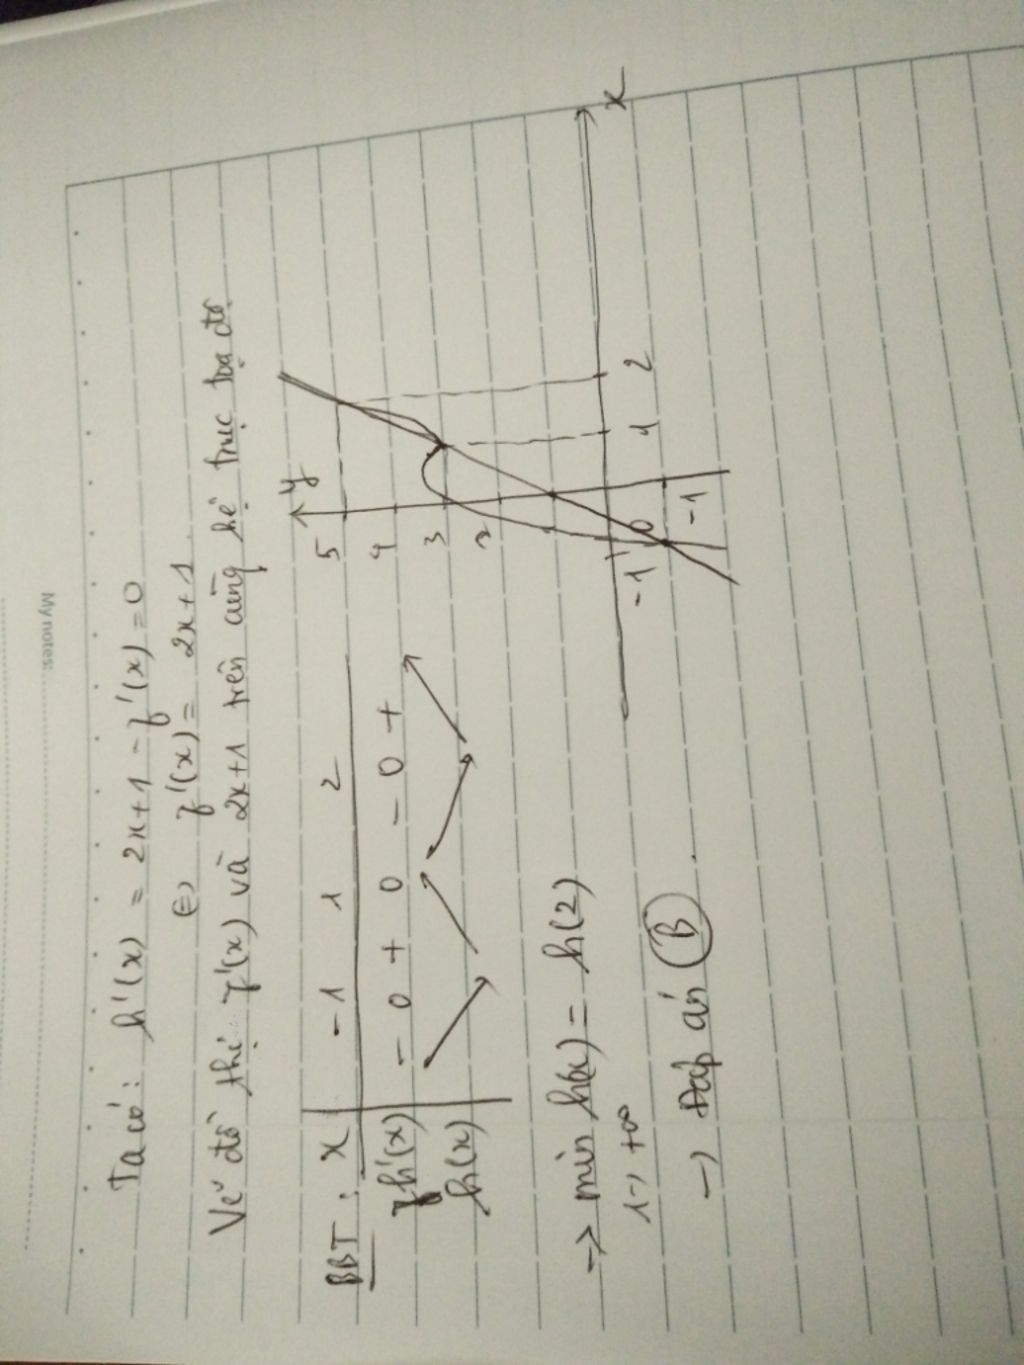 My notes:
Ta có: h'(x) = 2x+1 - f'(x) = 0
⇔ f'(x) = 2x+1
Vẽ đồ thị f'(x) và 2x+1 trên cùng hệ trục toạ độ
BBT: x -1 1 2
h'(x) - 0 + 0 - 0 +
h(x)
y
5
4
3
2
-1 0 1 2 x
-1
→ min h(x) = h(2)
1→+∞
→ Đáp án B.